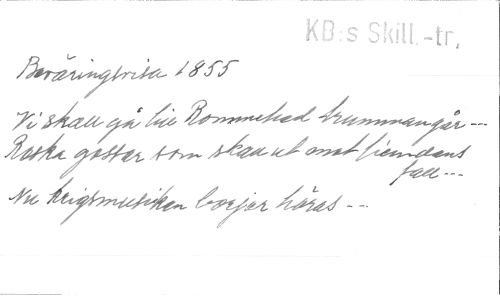 KB:s Skill.-tr,
Beväringsvisa 1855
Vi skall gå till Rommehed trumman går --
Raska gossar som skall ut mot fiendens
fall ---
Nu krigsmusiken börjar höras --